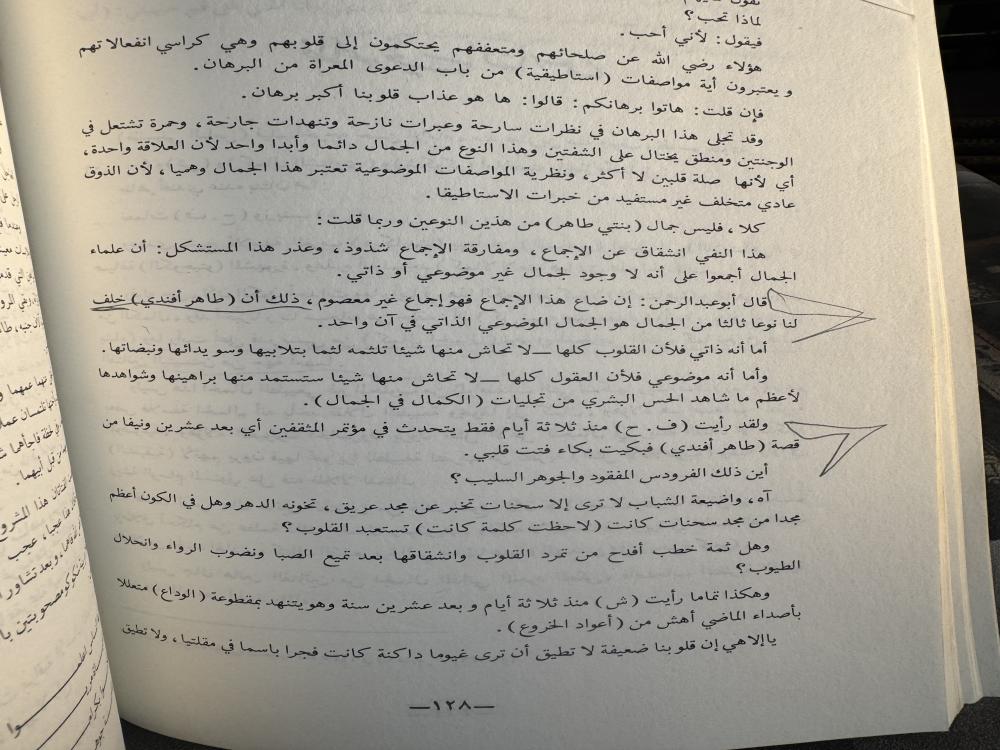 لماذا تحب؟
فيقول: لأني أحب.
هؤلاء رضي الله عن صلحائهم ومتعففهم يحتكمون إلى قلوبهم وهي كراسي انفعالاتهم
ويعتبرون أية مواصفات (استاطيقية) من باب الدعوى المعراة من البرهان.
فإن قلت: هاتوا برهانكم: قالوا: ها هو عذاب قلوبنا أكبر برهان.
وقد تجلى هذا البرهان في نظرات سارحة وعبرات نازحة وتنهدات جارحة، وحمرة تشتعل في
الوجنتين ومنطق يختال على الشفتين وهذا النوع من الجمال دائما وأبدا واحد لأن العلاقة واحدة،
أي لأنها صلة قلبين لا أكثر، ونظرية المواصفات الموضوعية تعتبر هذا الجمال وهميا، لأن الذوق
عادي متخلف غير مستفيد من خبرات الاستاطيقا.
كلا، فليس جمال (بنتي طاهر) من هذين النوعين وربما قلت:
هذا النفي انشقاق عن الإجماع، ومفارقة الإجماع شذوذ، وعذر هذا المستشكل: أن علماء
الجمال أجمعوا على أنه لا وجود لجمال غير موضوعي أو ذاتي.
قال أبوعبدالرحمن: إن ضاع هذا الإجماع فهو إجماع غير معصوم، ذلك أن (طاهر أفندي) خلف
لنا نوعا ثالثا من الجمال هو الجمال الموضوعي الذاتي في آن واحد.
أما أنه ذاتي فلأن القلوب كلها — لا تحاش منها شيئا تلثمه لثما بتلابيها وسويدائها ونبضاتها.
وأما أنه موضوعي فلأن العقول كلها — لا تحاش منها شيئا ستستمد منها براهينها وشواهدها
لأعظم ما شاهد الحس البشري من تجليات (الكمال في الجمال).
ولقد رأيت (ف. ح) منذ ثلاثة أيام فقط يتحدث في مؤتمر المثقفين أي بعد عشرين ونيفا من
قصة (طاهر أفندي) فبكيت بكاء فتت قلبي.
أين ذلك الفرودس المفقود والجوهر السليب؟
آه، واضيعة الشباب لا ترى إلا سحنات تخبر عن مجد عريق، تخونه الدهر وهل في الكون أعظم
مجدا من مجد سحنات كانت (لاحظت كلمة كانت) تستعبد القلوب؟
وهل ثمة خطب أفدح من تمرد القلوب وانشقاقها بعد تميع الصبا ونضوب الرواء وانحلال
الطيوب؟
وهكذا تماما رأيت (ش) منذ ثلاثة أيام و بعد عشرين سنة وهو يتنهد بمقطوعة (الوداع) متعللا
بأصداء الماضي أهش من (أعواد الخروع).
ياإلاهي إن قلوبنا ضعيفة لا تطيق أن ترى غيوما داكنة كانت فجرا باسما في مقلتيا، ولا تطيق
—١٢٨—